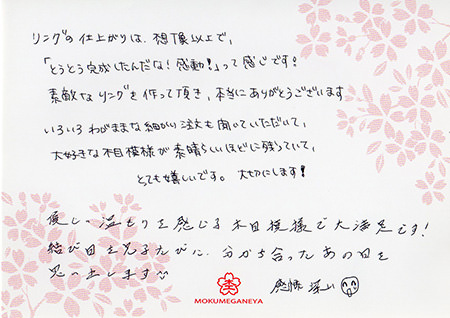 リングの仕上がりは、想像以上で、
「とうとう完成したんだな!感動!」って感じです!
素敵なリングを作って頂き、本当にありがとうございます
いろいろわがままな細かい注文も聞いていただいて、
大好きな木目模様が素晴らしいほどに残っていて、
とても嬉しいです。大切にします!
優しい温もりを感じる木目模様で大満足です!
結び目を見るたびに、分かち合ったあの日を
思い出します
感謝
MOKUMEGANEYA